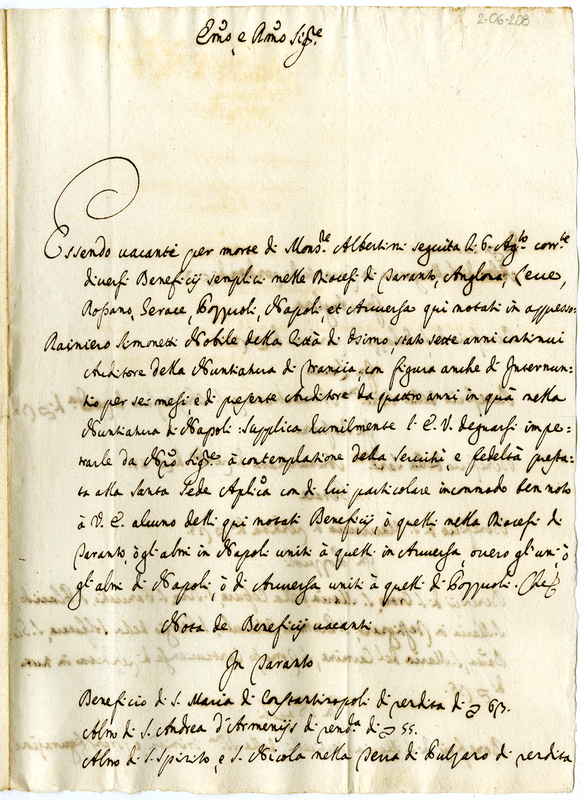 2-06-208
Em̃o e Rm̃o Sig.re
Essendo vacanti per morte di Mons.re Albertini seguita li 6. Ag.to corr.te
diversi Beneficij semplici nelle Diocesi di Taranto, Anglona, Lecce,
Rossano, Gerace, Pozzuoli, Napoli, et Anversa qui notati in appresso:
Rainiero Simonetti Nobile della Città di Osimo, stato sette anni continui
Auditore della Nuntiatura di Francia, con figura anche di Internun=
tio per sei mesi, e di presente Auditore da quattro anni in quà nella
Nuntiatura di Napoli: supplica humilmente l'E.V. degnarsi impe=
trarle da Nrõ Sig.re à contemplatione della servitù, e fedeltà presta=
ta alla Santa Sede Aplicã con di lui particolare incommodo ben noto
à V.E. alcuno delli qui notati Beneficij, ò quelli nella Diocesi di
Taranto, ò gli altri in Napoli uniti à quelli in Anversa, overo gli uni, ò
gli altri di Napoli, ò di Anversa uniti à quelli di Pozzuoli. Che
Nota de Beneficij vacanti
In Taranto
Beneficio di S. Maria di Costantinopoli di rendita di 63.
Altro di S. Andrea d'Armenijs di rend.ta di 55.
Altro di S. Spirito, e S. Nicola nella Terra di Pulzano di rendita